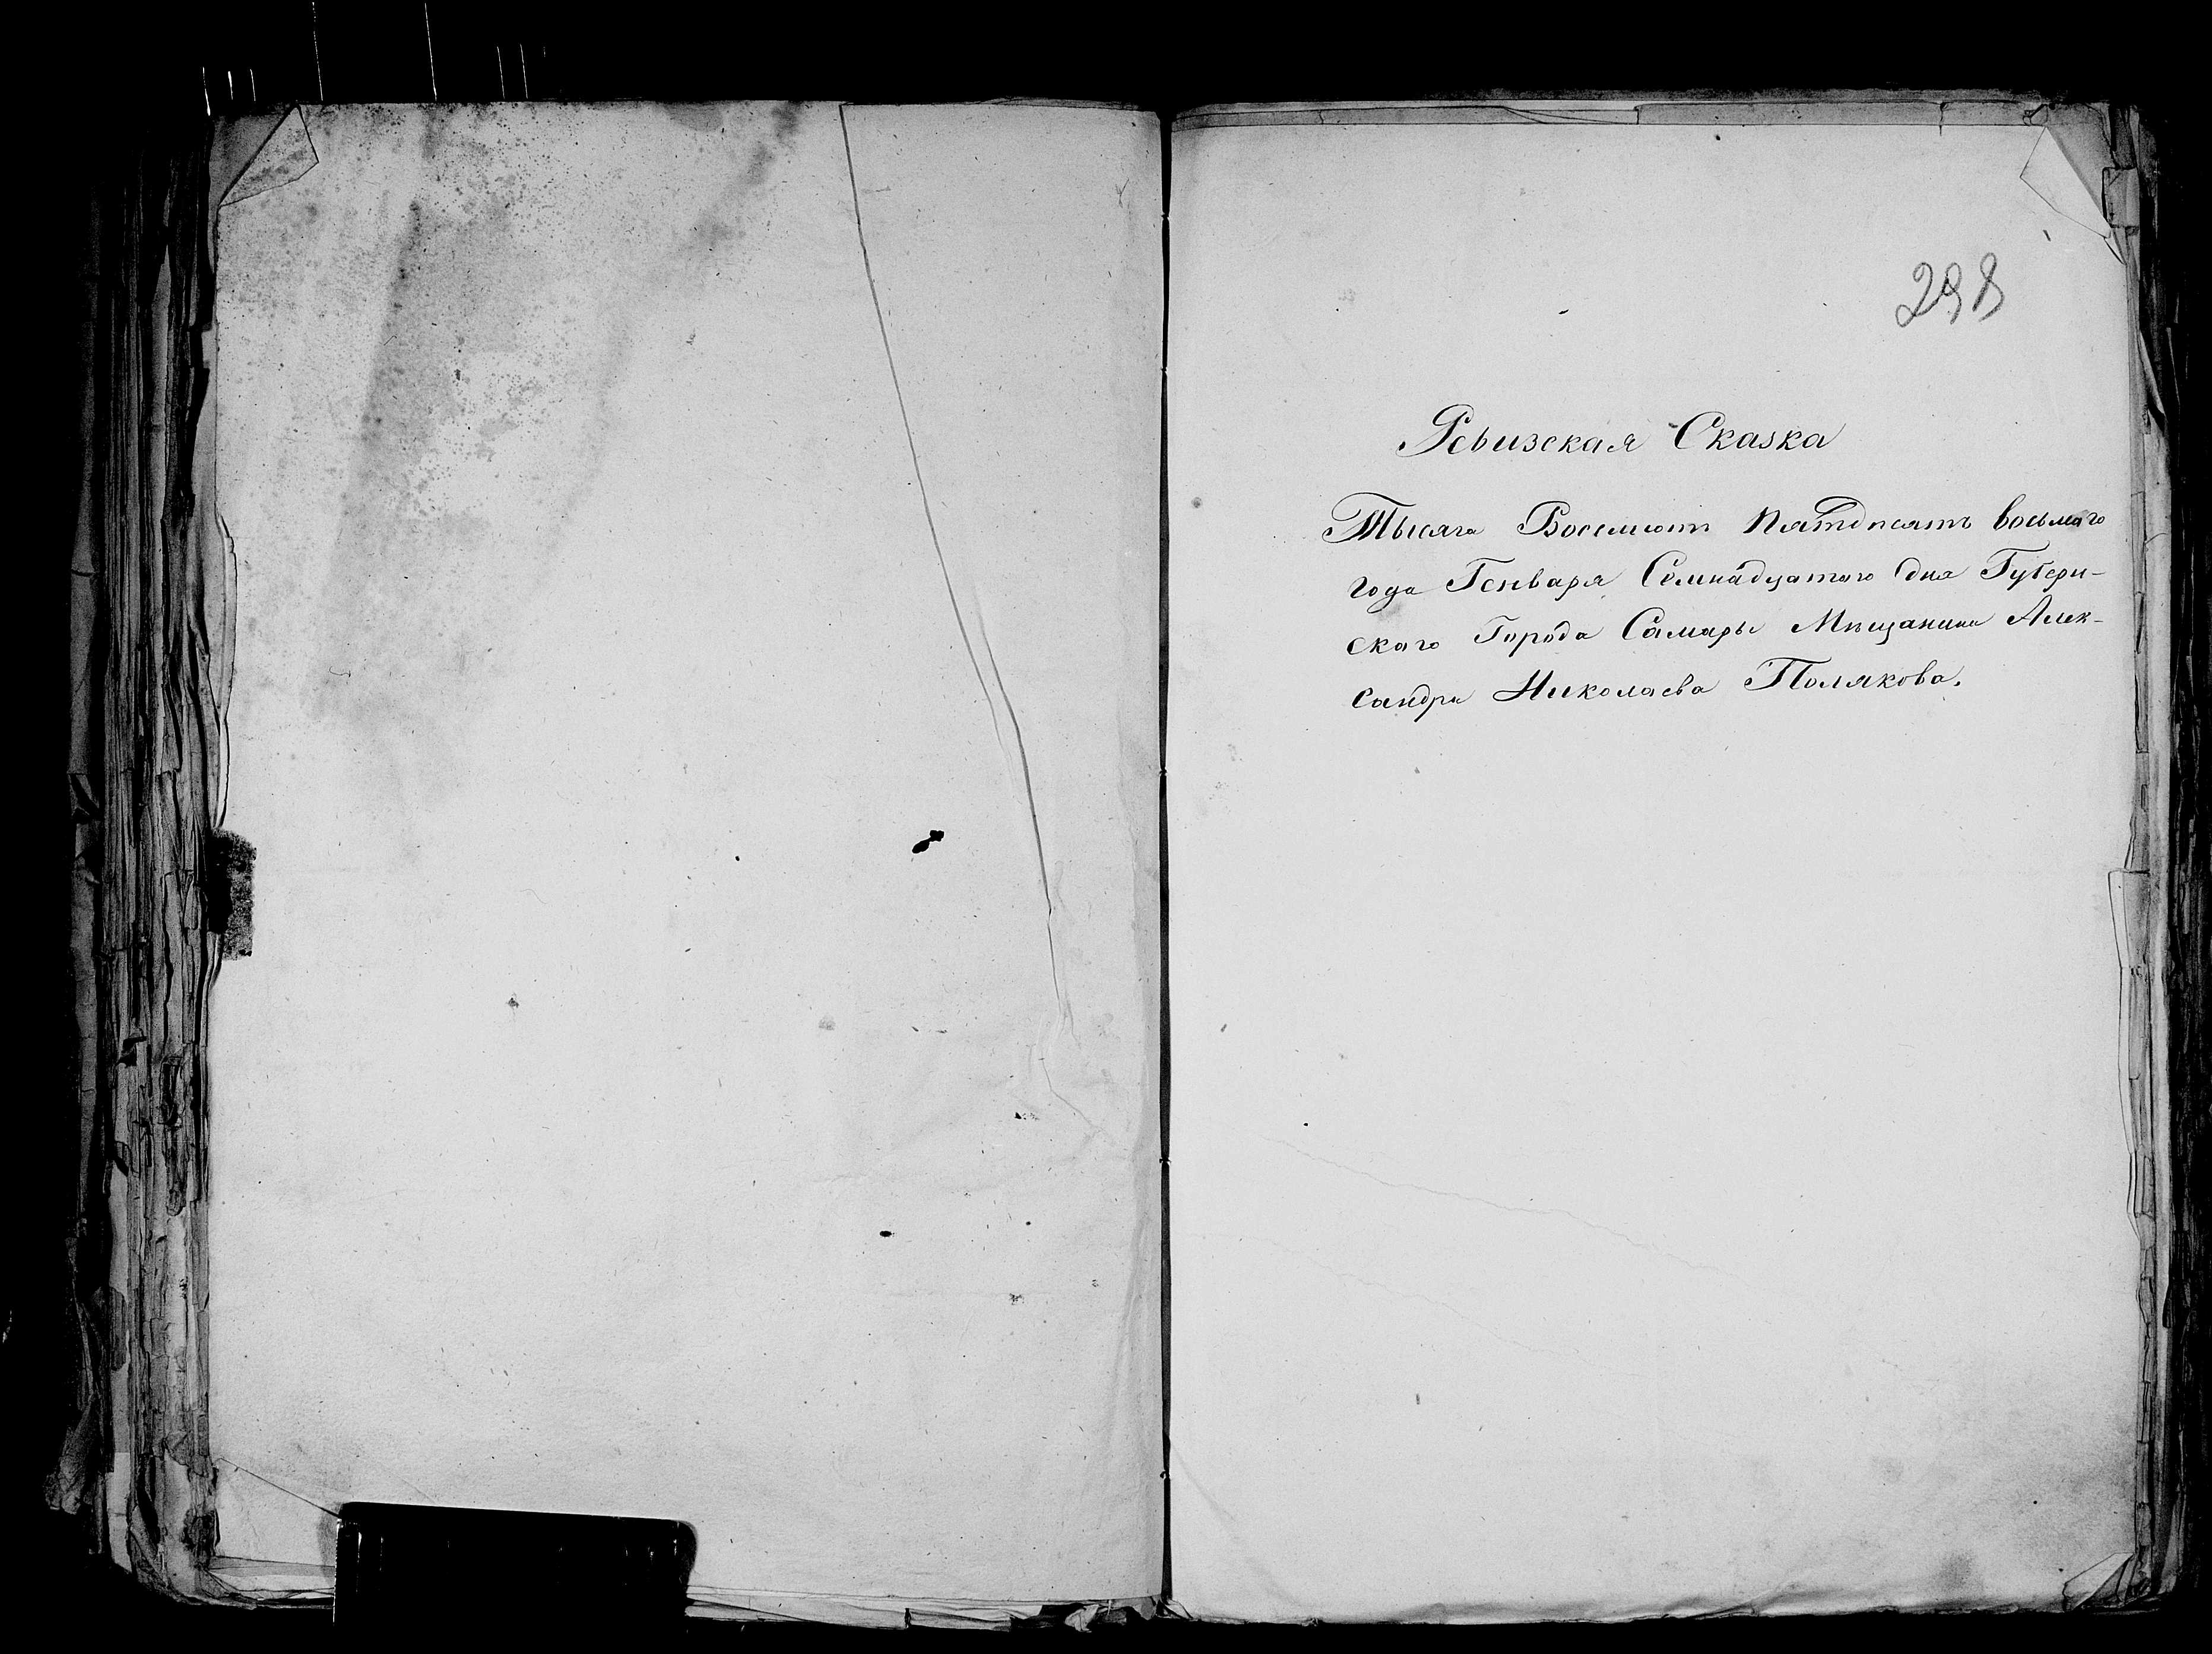 298
Ревизская Сказка
Тысяча Восемсотъ Пятдѣсятъ восьмаго
года Генваря Семнадцатаго дня Губерн-
скаго Города Самары Мѣщанина Алек-
сандра Николаева Полякова.